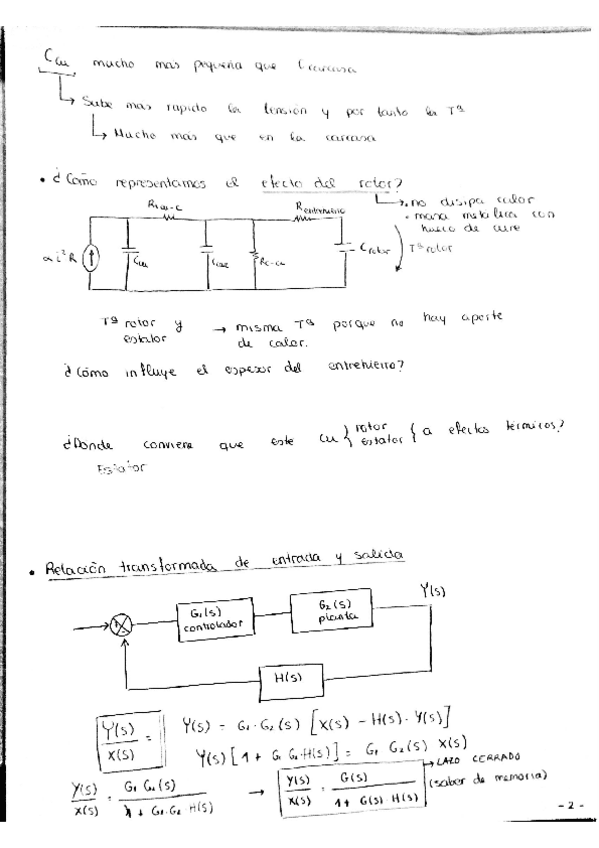 Ccu mucho mas pequeña que Ccarcasa
↳ Sube mas rapido la tensión y por tanto la Tª
↳ Mucho mas que en la carcasa
• ¿Como representamos el efecto del rotor?
↳ • no disipa calor
• masa metalica con
hueco de aire
Rcu-c
Rentrehierro
α i² R
Ccu
Crotor
Tª rotor
Tª rotor y
estator
→ misma Tª porque no hay aporte
de calor.
¿Cómo influye el espesor del entrehierro?
¿Donde conviene que este Cu } rotor
estator { a efectos termicos?
Estator
• Relación transformada de entrada y salida
Y(s)
G₁(s)
controlador
G₂(s)
planta
H(s)
Y(s)/X(s) =
Y(s) = G₁·G₂(s) [X(s) - H(s)·Y(s)]
Y(s)[1 + G₁ G₂·H(s)] = G₁ G₂(s) X(s)
Y(s)/X(s) = G₁ G₂(s)/1 + G₁·G₂ H(s) → Y(s)/X(s) = G(s)/1 + G(s)·H(s)
↳ LAZO CERRADO
(saber de memoria)
- 2 -